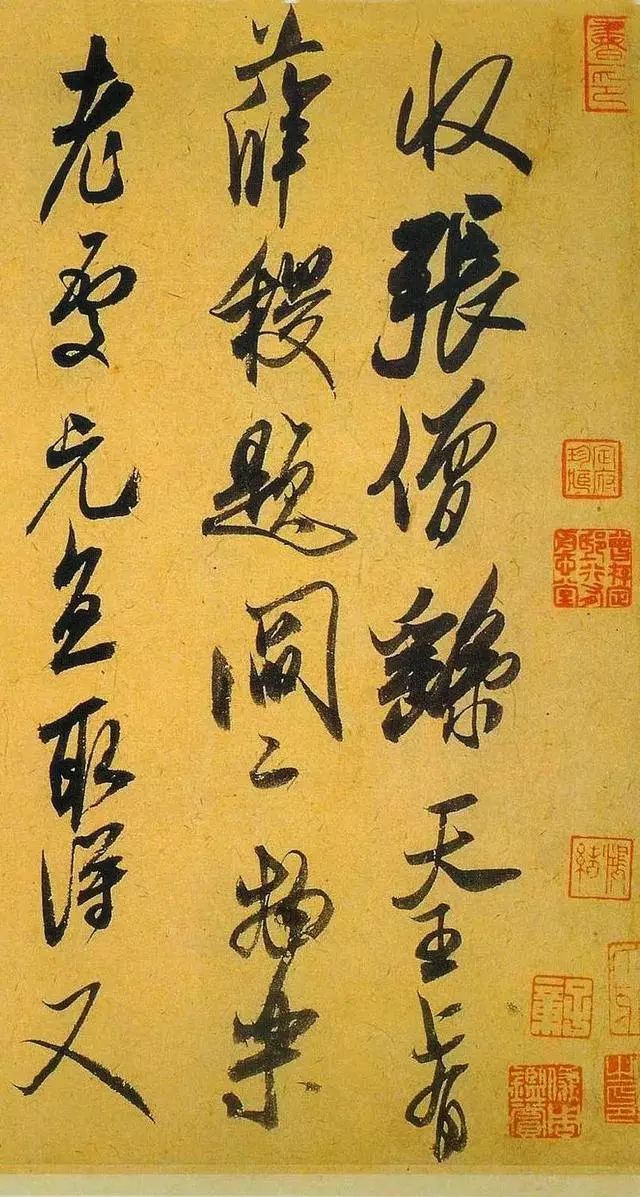 收張僧繇天王上有
薛稷題閻二物樂
老處元直取得又